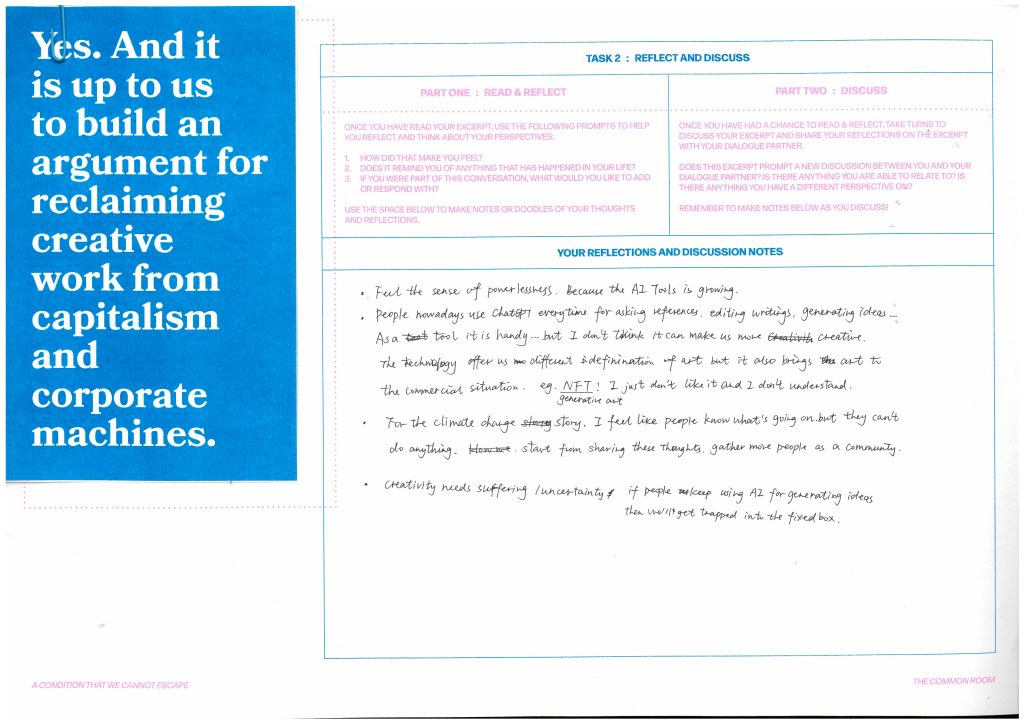 Yes. And it
is up to us
to build an
argument for
reclaiming
creative
work from
capitalism
and
corporate
machines.
TASK 2 : REFLECT AND DISCUSS
PART ONE : READ & REFLECT
ONCE YOU HAVE READ YOUR EXCERPT, USE THE FOLLOWING PROMPTS TO HELP
YOU REFLECT AND THINK ABOUT YOUR PERSPECTIVES:
1. HOW DID THAT MAKE YOU FEEL?
2. DOES IT REMIND YOU OF ANYTHING THAT HAS HAPPENED IN YOUR LIFE?
3. IF YOU WERE PART OF THIS CONVERSATION, WHAT WOULD YOU LIKE TO ADD
OR RESPOND WITH?
USE THE SPACE BELOW TO MAKE NOTES OR DOODLES OF YOUR THOUGHTS
AND REFLECTIONS.
PART TWO : DISCUSS
ONCE YOU HAVE HAD A CHANCE TO READ & REFLECT, TAKE TURNS TO
DISCUSS YOUR EXCERPT AND SHARE YOUR REFLECTIONS ON THE EXCERPT
WITH YOUR DIALOGUE PARTNER.
DOES THIS EXCERPT PROMPT A NEW DISCUSSION BETWEEN YOU AND YOUR
DIALOGUE PARTNER? IS THERE ANYTHING YOU ARE ABLE TO RELATE TO? IS
THERE ANYTHING YOU HAVE A DIFFERENT PERSPECTIVE ON?
REMEMBER TO MAKE NOTES BELOW AS YOU DISCUSS!
YOUR REFLECTIONS AND DISCUSSION NOTES
• Feel the sense of powerlessness. Because the AI Tools is growing.
• People nowadays use ChatGPT everytime for asking references, editing writings, generating ideas...
As a tool it is handy... but I don't think it can make us more creative.
The technology offer us different definination of art but it also brings art to
the commercial situation. eg. NFT! I just don't like it and I don't understand.
generative art
• For the climate change story, I feel like people know what's going on. but they can't
do anything. start from sharing these thoughts, gather more people as a community.
• Creativity needs suffering / uncertainty if people keep using AI for generating ideas
then we'll get trapped into the fixed box.
A CONDITION THAT WE CANNOT ESCAPE
THE COMMON ROOM